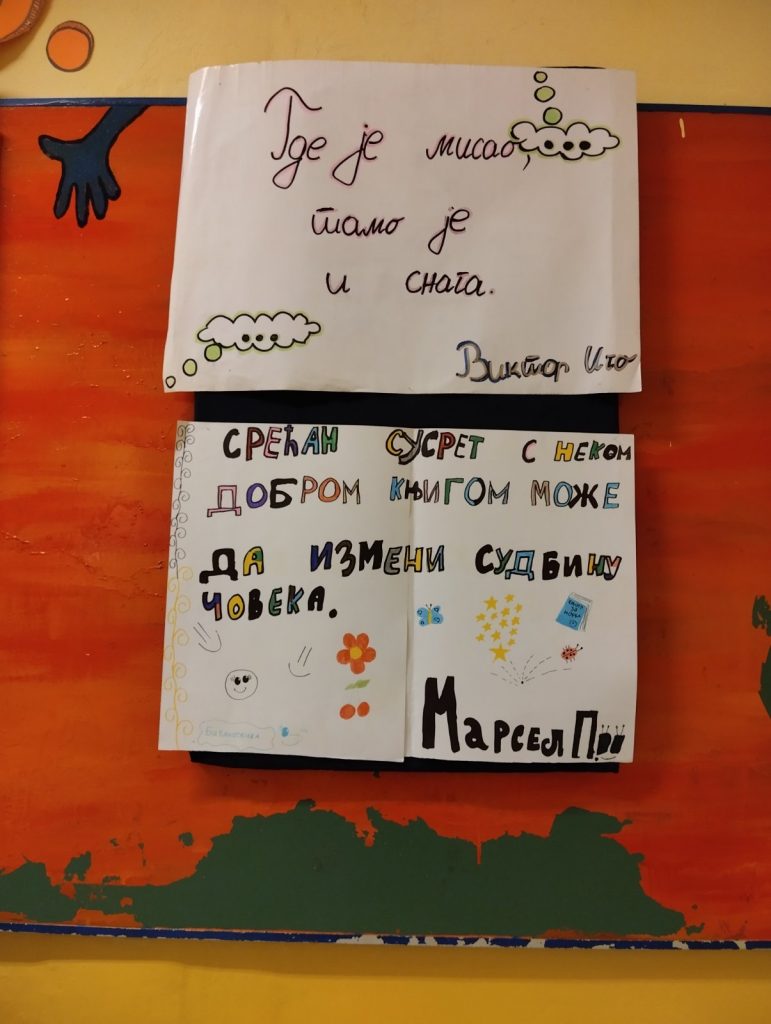 Где је мисао,
тамо је
и снага.
Виктор Иго
СРЕЋАН СУСРЕТ С НЕКОМ
ДОБРОМ КЊИГОМ МОЖЕ
ДА ИЗМЕНИ СУДБИНУ
ЧОВЕКА.
МАРСЕЛ